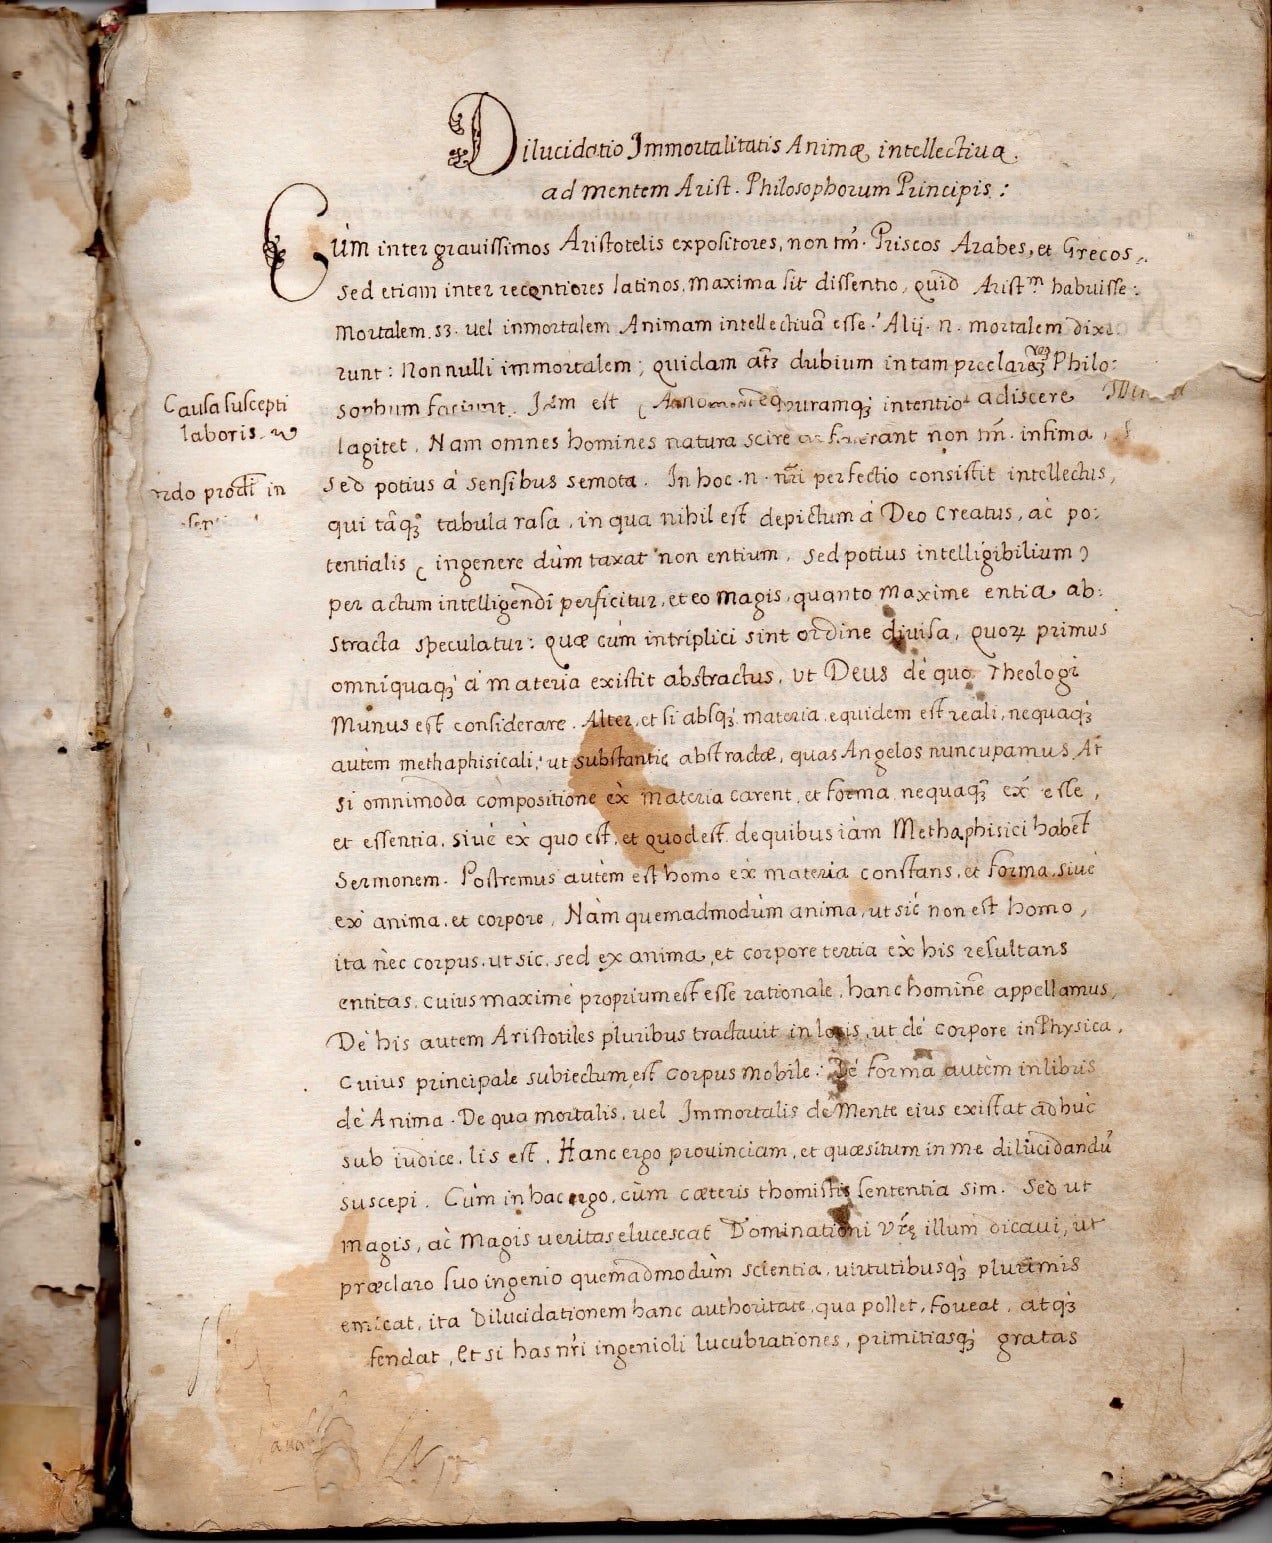 Dilucidatio Immortalitatis Animæ intellectiuæ
ad mentem Arist. Philosophorum Principis:
Cùm inter grauissimos Aristotelis expositores, non tm̃. Priscos Arabes, et Grecos,
sed etiam inter recentiores latinos, maxima sit dissentio, quid Aristm habuisse:
Mortalem. sꝫ. uel inmortalem Animam intellectiuã esse. Alij. n. mortalem dixe
runt: Nonnulli immortalem; quidam at̃ dubium in tam preclarũ Philo:
Causa suscepti
laboris.
sophum faciunt. Jam est intentio adiscere
lagitet, Nam omnes homines natura scire non tm̃. infima
sed potius à sensibus semota. In hoc. n. nr̃i perfectio consistit intellectus,
in
qui tãqꝫ tabula rasa, in qua nihil est depictum à Deo creatus, ac po:
tentialis ( in genere dùm taxat non entium, sed potius intelligibilium )
per actum intelligendi perficitur, et eo magis, quanto maxime entia ab:
stracta speculatur: quæ cùm in triplici sint ordine diuisa, quoꝝ primus
omniquaqꝫ à materia existit abstractus, ut Deus dè quo Theologi
Munus est considerare. Alter, et si absqꝫ materia equidem est reali, nequaqꝫ
autèm methaphisicali, ut substantiæ abstractæ, quas Angelos nuncupamus. At
si omnimoda compositione ex materia carent, et forma nequaqꝫ ex esse,
et essentia, siuè ex quo est, et quod est. de quibus iàm Methaphisici habẽt
Sermonem. Postremus autèm est homo ex materia constans, et forma, siuè
ex anima, et corpore, Nàm quemadmodùm anima, ut sic non est homo,
ita nèc corpus, ut sic, sed ex anima, et corpore tertia ex his resultans
entitas, cuius maximè proprium est esse rationale, hanc hominẽ appellamus,
Dè his autem Aristotiles pluribus tractauit in locis, ut dè corpore in Physica,
Cuius principale subiectum est corpus mobile: Dè forma autèm in libris
dè Anima. De qua mortalis, uel Immortalis de Mente eius existat adhùc
sub iudice lis est, Hanc ergo prouinciam, et quæsitum in me dilucidandũ
suscepi. Cùm in hac ergo, cùm cæteris thomistis sententia sim. Sed ut
magis, àc magis ueritas elucescat Dominationi Vr̃ę illum dicaui, ut
præclaro suo ingenio quemadmodùm scientia, uirtutibusqꝫ plurimis
emicat, ita Dilucidationem hanc authoritate, qua pollet, foueat, atqꝫ
fendat, Et si has nr̃i ingenioli lucubrationes, primitiasqꝫ gratas